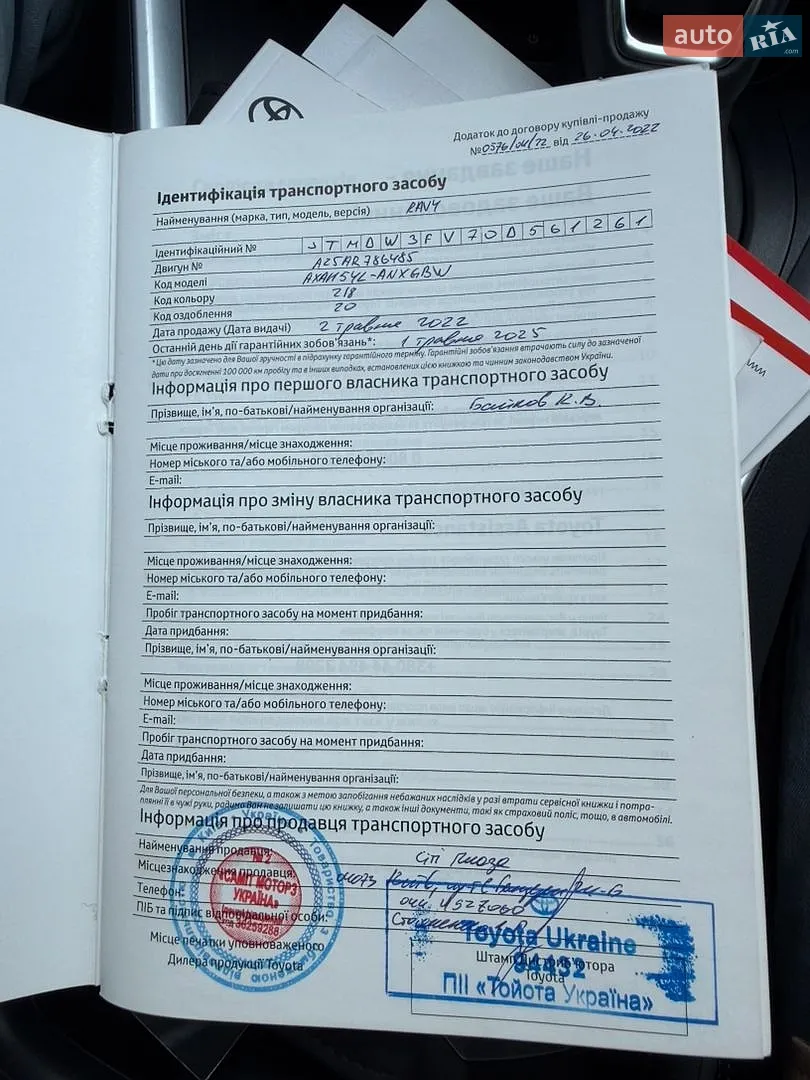 auto RIA .com
Додаток до договору купівлі-продажу
№0576/04/22 від 26.04.2022
Ідентифікація транспортного засобу
Найменування (марка, тип, модель, версія) RAV4
Ідентифікаційний № JTMDW3FV70D561261
Двигун № A25AR786485
Код моделі AXAH54L-ANXGBW
Код кольору 218
Код оздоблення 20
Дата продажу (Дата видачі) 2 травня 2022
Останній день дії гарантійних зобов'язань*: 1 травня 2025
* Цю дату зазначено для Вашої зручності в підрахунку гарантійного терміну. Гарантійні зобов'язання втрачають силу до зазначеної
дати при досягненні 100 000 км пробігу та в інших випадках, встановлених цією книжкою та чинним законодавством України.
Інформація про першого власника транспортного засобу
Прізвище, ім'я, по-батькові/найменування організації: К.В.
Місце проживання/місце знаходження:
Номер міського та/або мобільного телефону:
E-mail:
Інформація про зміну власника транспортного засобу
Прізвище, ім'я, по-батькові/найменування організації:
Місце проживання/місце знаходження:
Номер міського та/або мобільного телефону:
E-mail:
Пробіг транспортного засобу на момент придбання:
Дата придбання:
Прізвище, ім'я, по-батькові/найменування організації:
Місце проживання/місце знаходження:
Номер міського та/або мобільного телефону:
E-mail:
Пробіг транспортного засобу на момент придбання:
Дата придбання:
Прізвище, ім'я, по-батькові/найменування організації:
Для Вашої персональної безпеки, а також з метою запобігання небажаних наслідків у разі втрати сервісної книжки і потра-
плянні її в чужі руки, радимо Вам не залишати цю книжку, а також інші документи, такі як страховий поліс, тощо, в автомобілі.
Інформація про продавця транспортного засобу
Найменування продавця: Сіті Плаза
Місцезнаходження продавця: 04073
Телефон: 4927060
ПІБ та підпис відповідальної особи:
Місце печатки уповноваженого
Дилера продукції Toyota
№ 2
«САМІТ МОТОРЗ
УКРАЇНА»
Toyota Ukraine
Штамп Дистриб'ютора
Toyota
ПІІ «Тойота Україна»